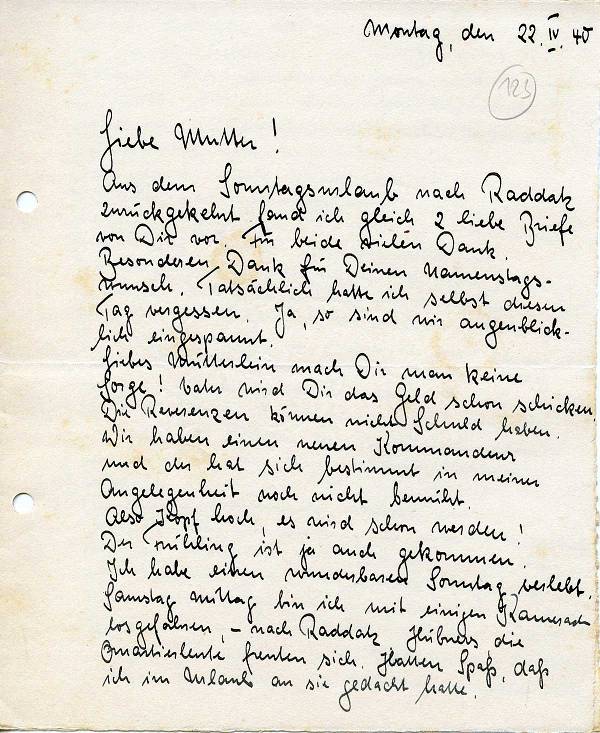 Montag, den 22. IV. 40
123
Liebe Mutter!
Aus dem Sonntagsurlaub nach Raddatz
zurückgekehrt fand ich gleich 2 liebe Briefe
von Dir vor. Für beide vielen Dank.
Besonderen Dank für Deinen Namenstags-
wunsch. Tatsächlich hatte ich selbst diesen
Tag vergessen. Ja, so sind wir augenblick-
lich eingespannt.
Liebes Mütterlein mach Dir man keine
Sorge! Vater wird Dir das Geld schon schicken.
Die Reverenzen können nicht Schuld haben.
Wir haben einen neuen Kommandeur
und der hat sich bestimmt in meiner
Angelegenheit noch nicht bemüht.
Also Kopf hoch, es wird schon werden!
Der Frühling ist ja auch gekommen.
Ich habe einen wunderbaren Sonntag verlebt.
Samstag mittag bin ich mit einigen Kameraden
losgefahren, – nach Raddatz. Hübners, die
Quartiersleute freuten sich. Hatten Spaß, daß
ich im Urlaub an sie gedacht hatte.